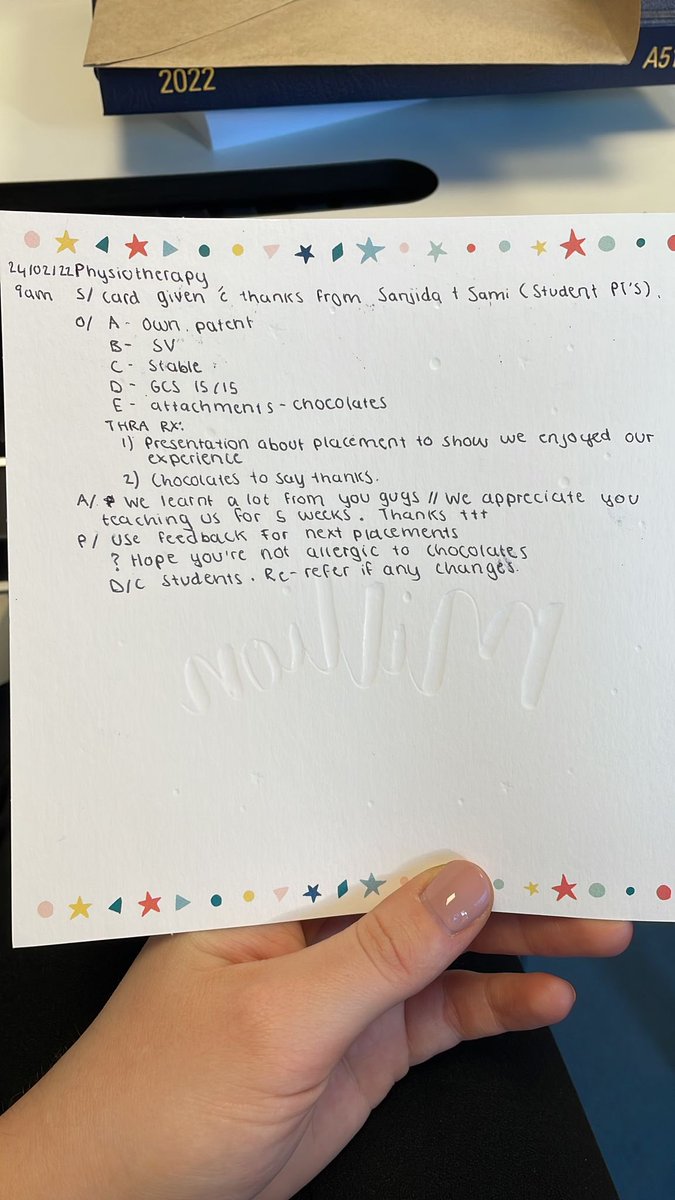 2022
A51
24/02/22 Physiotherapy
9am S/ Card given c̄ thanks from Sanjida + Sami (Student PT's).
O/ A - Own. patent
B - SV
C - Stable
D - GCS 15/15
E - attachments - chocolates
THRA RX:
1) Presentation about placement to show we enjoyed our
experience
2) Chocolates to say thanks.
A/ We learnt a lot from you guys // We appreciate you
teaching us for 5 weeks. Thanks +++
P/ Use feedback for next placements
? Hope you're not allergic to chocolates
D/C students. Re-refer if any changes.
Million